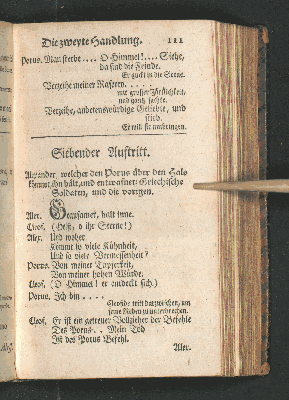 Die zweyte Handlung. 111
Porus. Man sterbe .... O Himmel! .... Siehe,
da sind die Feinde.
Er zuckt in die Scene.
Verzeihe meiner Raserey ....
mit großer Zärtlichkeit,
und
Verzeihe, anbetenswürdige Geliebte, und
stirb.
Er will sie umbringen.
Siebender Auftritt.
Alexander, welcher den Porus über den Hals
kömmt, ihn hält, und entwafnet: Griechische
Soldaten, und die vorigen.
Aler. Grausamer, halt inne.
Cleof. (Helft, o ihr Sterne!)
Alex. Und woher
Kömmt so viele Kühnheit,
Und so viele Vermessenheit?
Porus. Von meiner Tapferkeit,
Von meiner hohen Würde.
Cleof. (O Himmel! er entdeckt sich.)
Porus. Ich bin ....
Cleofide tritt darzwischen, um
seine Reden zu unterbrechen.
Cleof. Er ist ein getreuer Vollzieher der Befehle
Des Porus.. Mein Tod
Ist des Porus Befehl.
Aler.